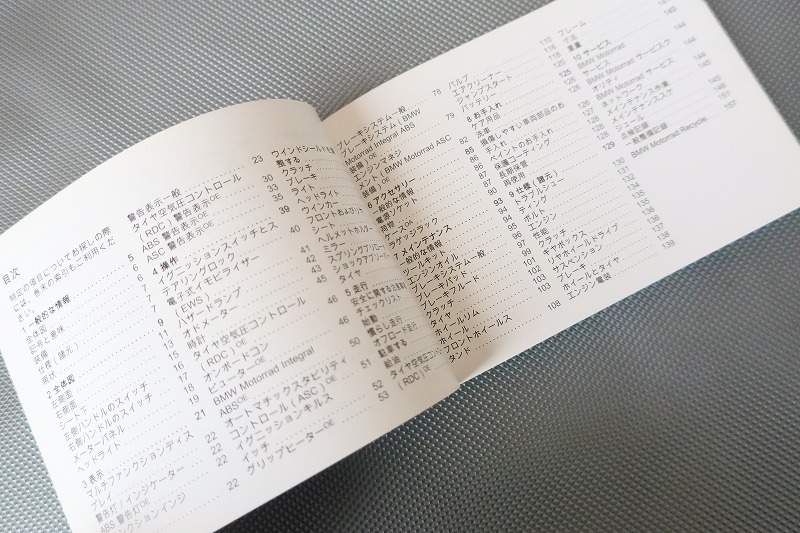 目次
特定の項目についてお探しの際
には、巻末の索引もご利用くだ
さい。
1 一般的な情報 5
全体図 6
記号と意味 6
装備 7
仕様 (諸元) 7
現行 7
2 全体図 9
左側面 11
右側面 13
シート下 15
左側ハンドルのスイッチ 16
右側ハンドルのスイッチ 17
メーターパネル 18
ヘッドライト 19
3 表示 21
マルチファンクションディス
プレイ 22
警告灯 / インジケーター 22
ABS 警告灯OE 22
ンクションインジ 22
警告表示一般 23
タイヤ空気圧コントロール
(RDC) 警告表示OE 30
ABS 警告表示OE 33
ASC 警告表示OE 35
4 操作 39
イグニッションスイッチとス
テアリングロック 40
電子式イモビライザー
(EWS) 41
ハザードランプ 42
オドメーター 43
時計 45
タイヤ空気圧コントロール
(RDC)OE 46
オンボードコン
ピューターOE 46
BMW Motorrad Integral
ABSOE 50
オートマチックスタビリティ
コントロール (ASC)OE 51
イグニッションキルス
イッチ 52
グリップヒーターOE 53
ウインドシールドを調
整する
クラッチ
ブレーキ
ライト
ヘッドライト
ウインカー
フロントおよびリヤ
シート
ヘルメットホルダー
ミラー
スプリングプリロー
ショックアブソーバー
タイヤ
5 走行
安全に関する注意事項
チェックリスト
始動
慣らし走行
オフロード走行
駐車する
給油
タイヤ空気圧コント
(RDC)OE
ブレーキシステム一般 78
ブレーキシステム (BMW
Motorrad Integral ABS
装備)OE 79
エンジンマネジ
メント (BMW Motorrad ASC
装備)OE 82
6 アクセサリー 85
一般的な情報 86
電源ソケット 86
荷物 87
ケースOK 90
ラゲッジラック
7 メンテナンス 93
一般的な情報 94
ツールキット 94
エンジンオイル 95
ブレーキシステム一般 96
ブレーキパッド 97
ブレーキフルード 99
クラッチ 101
タイヤ 102
ホイールリム 103
ホイール 103
フロントホイールス
タンド 108
バルブ 110
エアクリーナー 116
ジャンプスタート 118
バッテリー 120
8 お手入れ 125
ケア用品 126
洗車 126
損傷しやすい車両部品のお
手入れ 127
ペイントのお手入れ 128
保護コーティング 128
長期保管 128
再使用 129
9 仕様 (諸元)
トラブルシュー
ティング 130
ボルト 131
エンジン
性能
クラッチ
ギヤボックス
リヤホイールドライブ
サスペンション
ブレーキ
ホイールとタイヤ 138
エンジン電装 139
フレーム
寸法
重量
10 サービス 143
BMW Motorrad
サービス 144
BMW Motorrad サービスク
オリティ 144
BMW Motorrad サービス
ネットワーク 144
メインテナンス作業 145
メインテナンススケ
ジュール 145
点検記録 146
一般整備記録 151
BMW Motorrad Recycle. 157